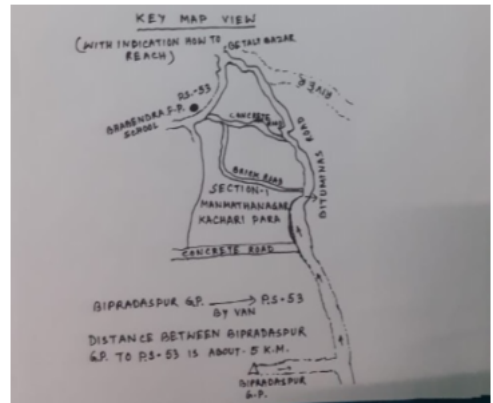 KEY MAP VIEW
(WITH INDICATION HOW TO
REACH)
GETALY BAZAR
RIVER
P.S-53
BHABENDRA F.P.
SCHOOL
CONCRETE ROAD
BITUMINAS ROAD
BRICK ROAD
SECTION-1
MANMATHANAGAR
KACHARI PARA
CONCRETE ROAD
BIPRADASPUR G.P. → P.S-53
BY VAN
DISTANCE BETWEEN BIPRADASPUR
G.P. TO P.S-53 IS ABOUT-5 K.M.
BIPRADASPUR
G.P.